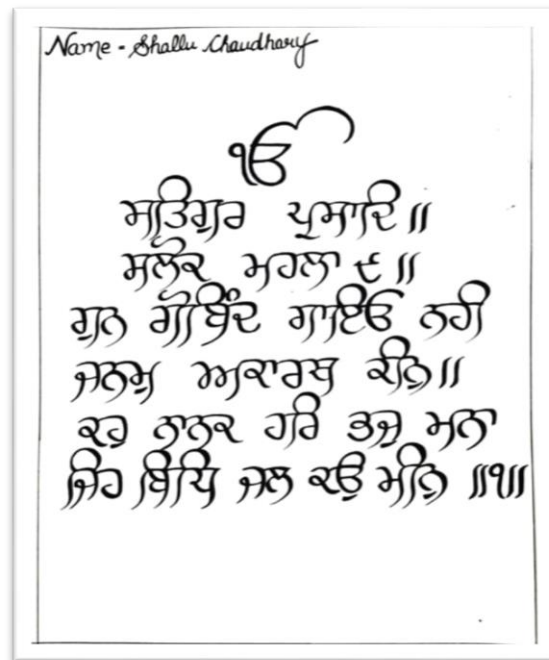 Name - Shallu Chaudhary
ੴ
ਸਤਿਗੁਰ ਪ੍ਰਸਾਦਿ॥
ਸਲੋਕ ਮਹਲਾ ੯॥
ਗੁਨ ਗੋਬਿੰਦ ਗਾਇਓ ਨਹੀ
ਜਨਮੁ ਅਕਾਰਥ ਕੀਨੁ॥
ਕਹੁ ਨਾਨਕ ਹਰਿ ਭਜੁ ਮਨਾ
ਜਿਹ ਬਿਧਿ ਜਲ ਕਉ ਮੀਨੁ ॥੧॥